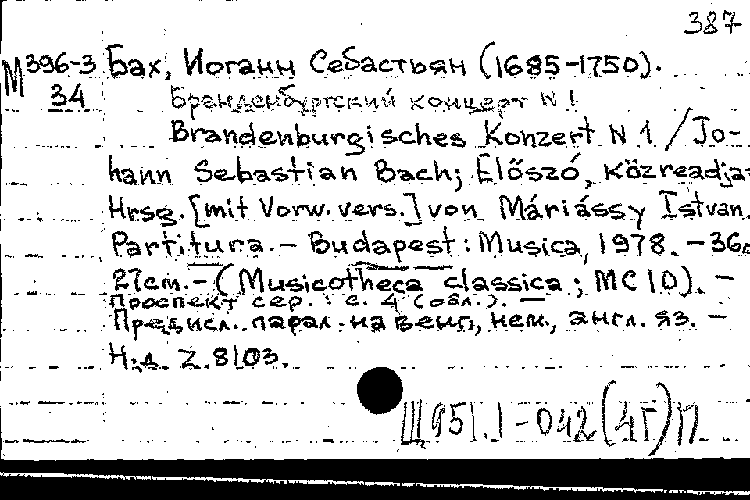 387
М 396-3 Бах, Иоганн Себастьян (1685-1750).
34 Бранденбургский концерт N 1
Brandenburgisches Konzert N 1 / Jo-
hann Sebastian Bach; Előszó, közreadja=
Hrsg. [mit Vorw. vers.] von Máriássy István.
Partitura. - Budapest: Musica, 1978. - 36с
27cm. - (Musicotheca classica; MC 10). -
Проспект сер.: с. 4 (обл.). -
Предисл. парал. на венг., нем., англ. яз. -
Н.д. Z. 8103.
Щ951.1-042(4Г)П